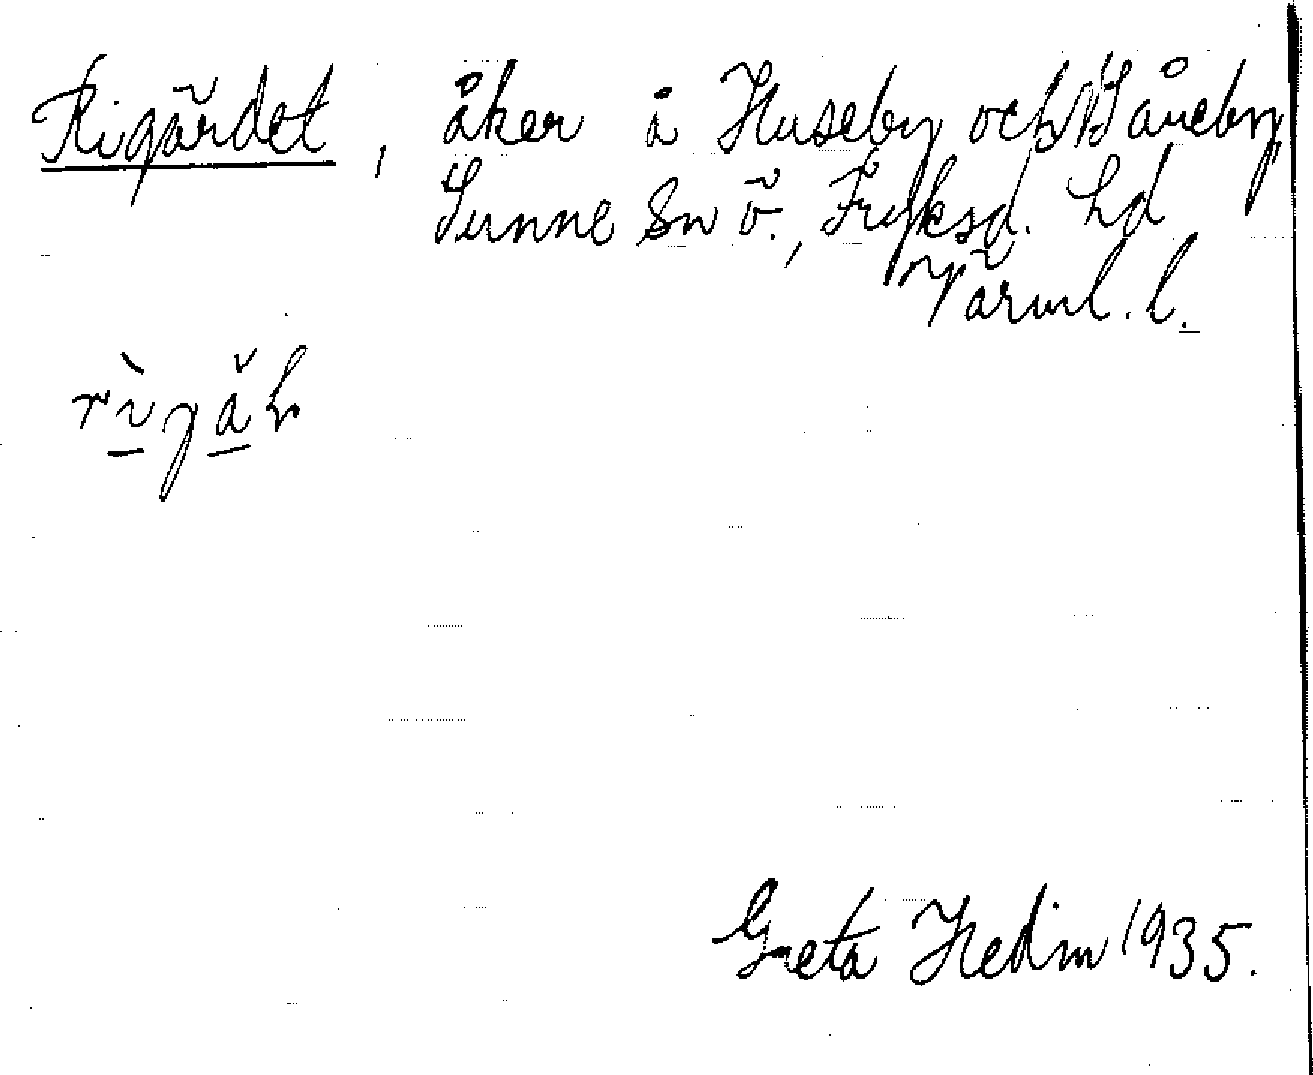 Rigärdet, åker å Huseby och Såneby,
Sunne Sn ö., Fryksd. hd
Värml. l.
Greta Hedin 1935.